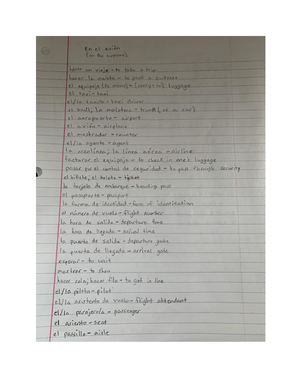 En el avión
(on the airplane)
hacer un viaje - to take a trip
hacer la maleta - to pack a suitcase
el equipaje (de mano) - (carry-on) luggage
el taxi - taxi
el/la taxista - taxi driver
el baúl, la maletera - trunk (of a car)
el aeropuerto - airport
el avión - airplane
el mostrador - counter
el/la agente - agent
la aerolínea, la línea aérea - airline
facturar el equipaje - to check in one's luggage
pasar por el control de seguridad - to pass through security
el billete, el boleto - ticket
la tarjeta de embarque - boarding pass
el pasaporte - passport
la forma de identidad - form of identification
el número de vuelo - flight number
la hora de salida - departure time
la hora de llegada - arrival time
la puerta de salida - departure gate
la puerta de llegada - arrival gate
esperar - to wait
mostrar - to show
hacer cola, hacer fila - to get in line
el/la piloto - pilot
el/la asistente de vuelo - flight attendant
el/la pasajero/a - passenger
el asiento - seat
el pasillo - aisle